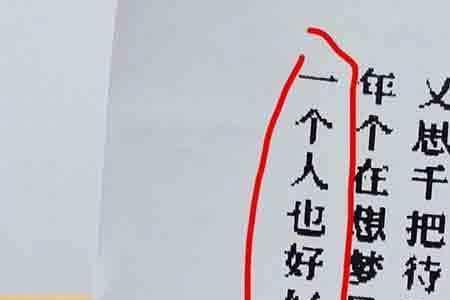 思千把待
年个在想梦
一个人也好